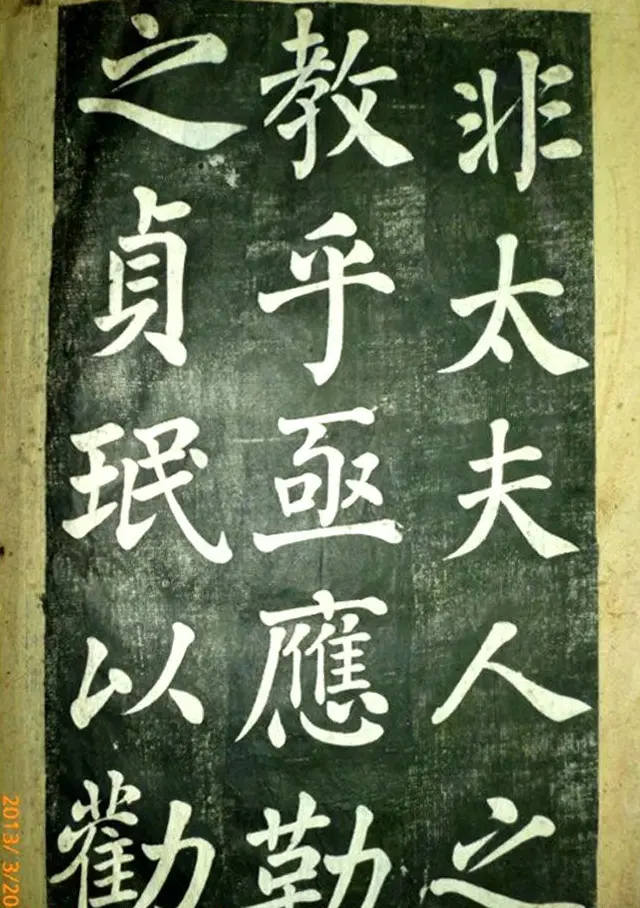 非太夫人之
教乎亟應勒
之貞珉以勸
2013/3/20